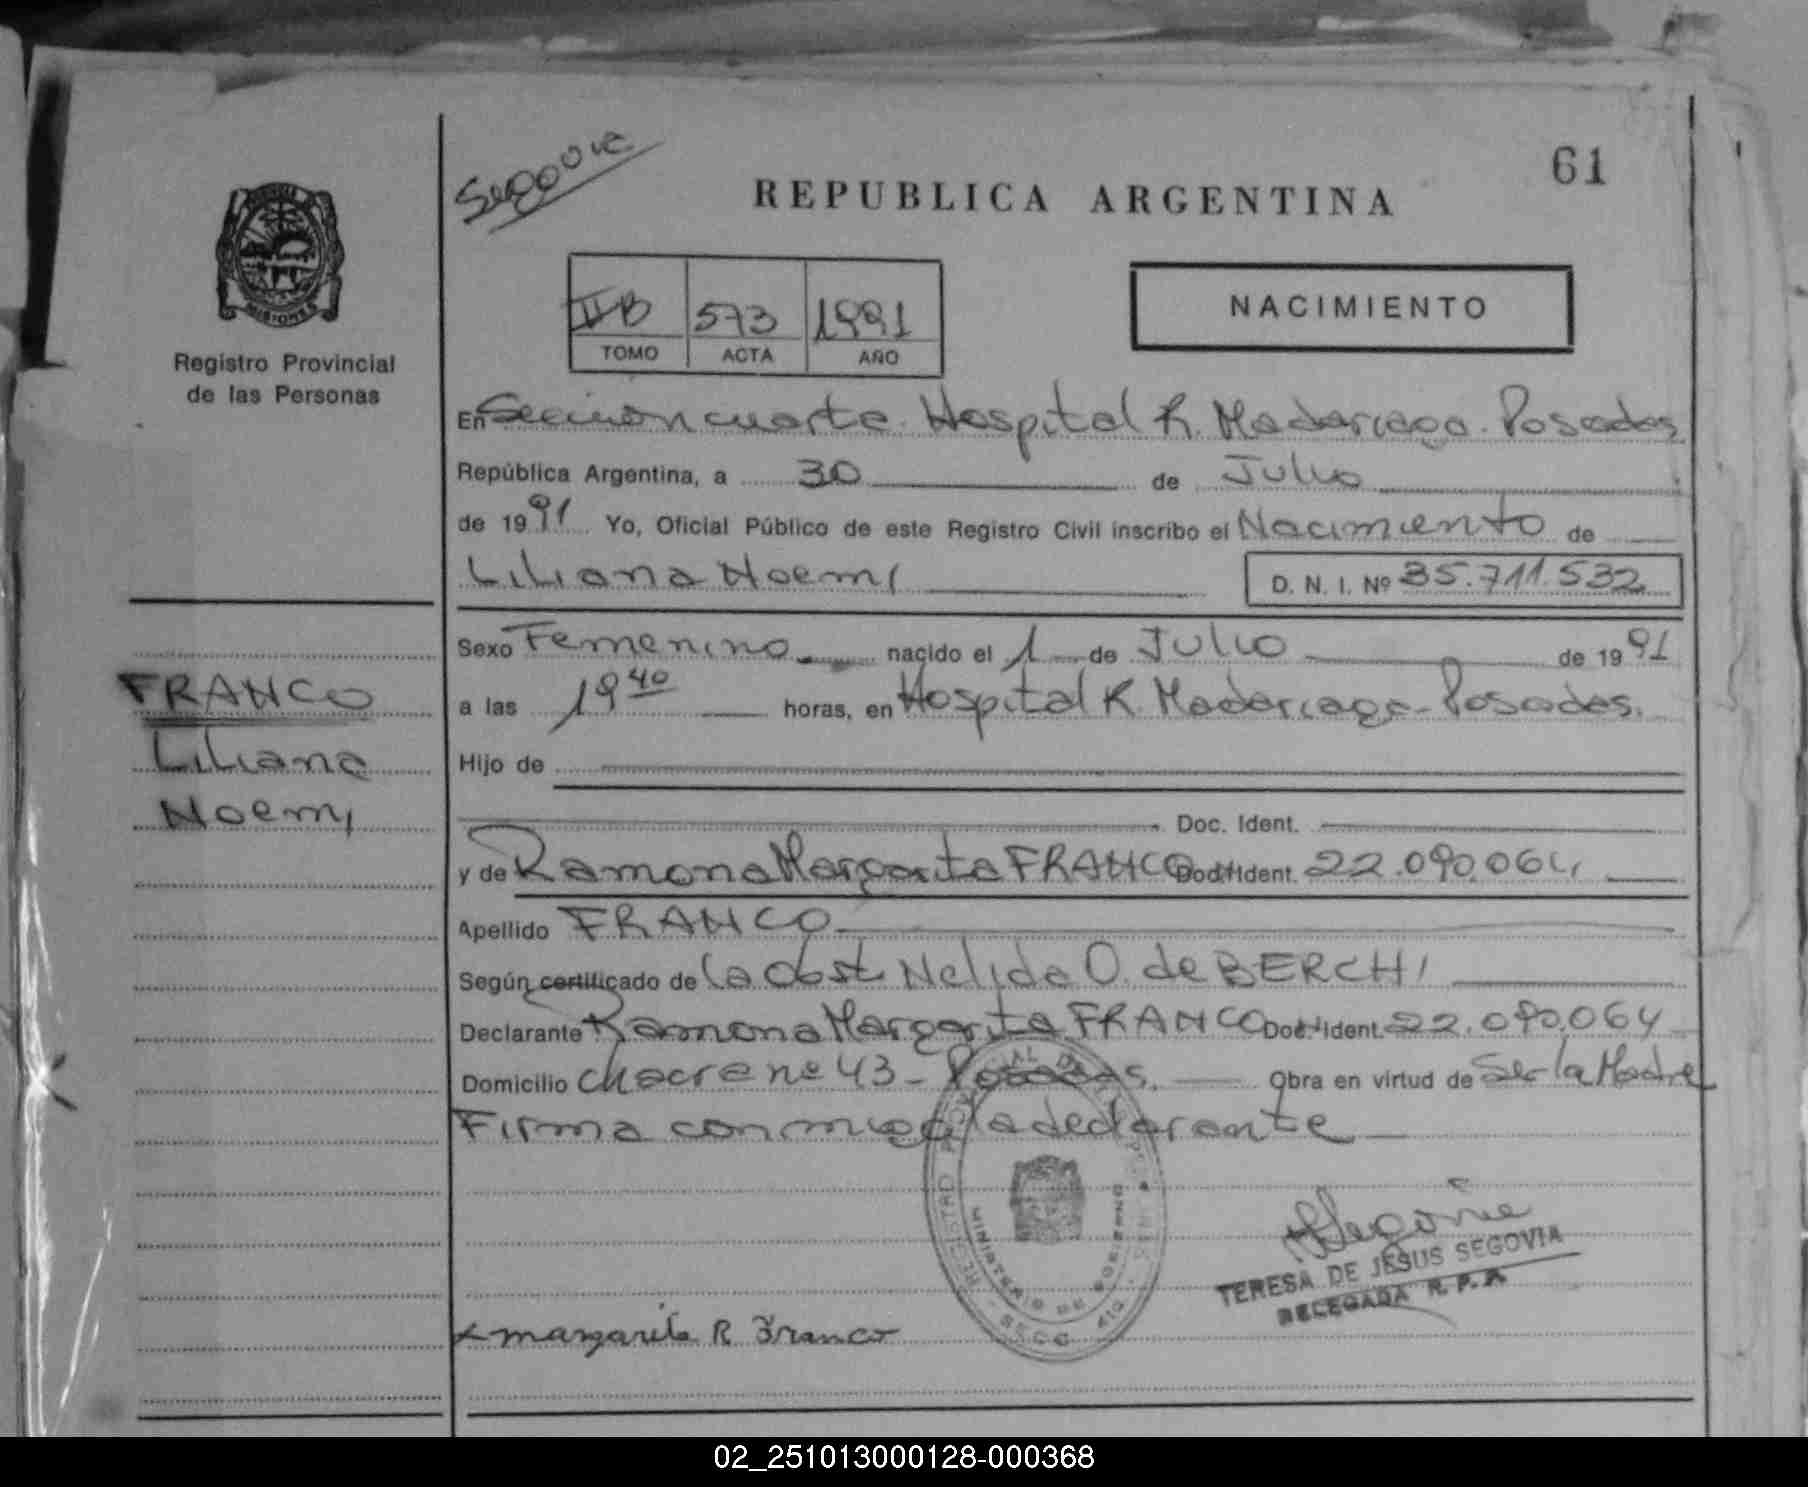 Segovia
REPUBLICA ARGENTINA
61
MISIONES
Registro Provincial
de las Personas
IIB 573 1991
TOMO ACTA AÑO
NACIMIENTO
En Sección cuarta. Hospital R. Madariaga. Posadas
República Argentina, a 30 de Julio
de 1991 Yo, Oficial Público de este Registro Civil inscribo el Nacimiento de
Liliana Noemi D. N. I. Nº 35.711.532
Sexo Femenino nacido el 1 de Julio de 1991
a las 19 40 horas, en Hospital R. Madariaga - Posadas.
Hijo de
Doc. Ident.
y de Ramona Margarita FRANCO Doc. Ident. 22.090.064
Apellido FRANCO
Según certificado de la Obst Nelida O. de BERCHI
Declarante Ramona Margarita FRANCO Doc. Ident. 22.090.064
Domicilio chacra nº 43 - Posadas. Obra en virtud de Ser la Madre
Firma conmigo la declarante
FRANCO
Liliana
Noemi
Segovia
TERESA DE JESUS SEGOVIA
DELEGADA R. P. P.
x margarita R Franco
REGISTRO PROVINCIAL DE LAS PERSONAS
MINISTERIO DE GOBIERNO
SECC. 4ta
02_251013000128-000368